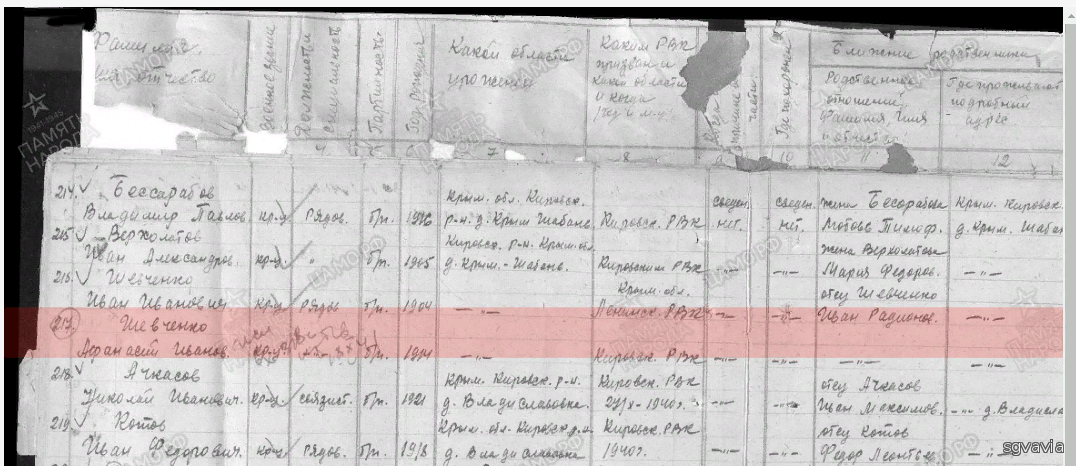 Фамилия
имя отчество
Военное звание
Должность и специальность
Партийность
Год рождения
Какой области
уроженец
Каким РВК
призван и
какой области
и когда
Где похоронен
Ближние родственники
Родственные
отношения,
Фамилия, Имя
и отчество
Где проживают
подробный
адрес
7 8 9 10 11 12
214. Бессарабов
Владимир Павлов. кр-ц рядов. б/п. Крым. обл. Кировск. р-н. д. Крым Шабань Кировск. РВК сведен. нет. сведен. нет. жена Бесарабова Крым. Кировск. д. Крым. Шабан
215 Верхолатов
Иван Александров. кр-ц " б/п. 1905 Кировск. р-н Крым. обл. д. Крым-Шабань. Кировским РВК -"- -"- жена Верхолатова Мария Федоров. -"-
216. Шевченко
Иван Иванович кр-ц рядов. б/п. 1904 -"- Крым. обл. Ленинск. РВК -"- -"- отец Шевченко Иван Радионов. -"-
217. Шевченко
Афанасий Иванов. кр-ц б/п. -"- Кировск. РВК -"- -"- -"- -"-
218 Ачкасов
Николай Иванович. кр-ц связист. б/п. 1921 Крым. Кировск. р-н. д. Владиславовка. Кировск. РВК 1940г. -"- -"- отец Ачкасов Иван Максимов. -"- д. Владисла
219. Котов
Иван Федорович. кр-ц рядов. б/п. 1918 Крым. обл. Кировск. р-н д. Владиславовка Кировск. РВК 1940г. -"- -"- отец Котов Федор Леонтьев. -"-
ПАМЯТЬ НАРОДА
ЦАМО.РФ
sgvavia